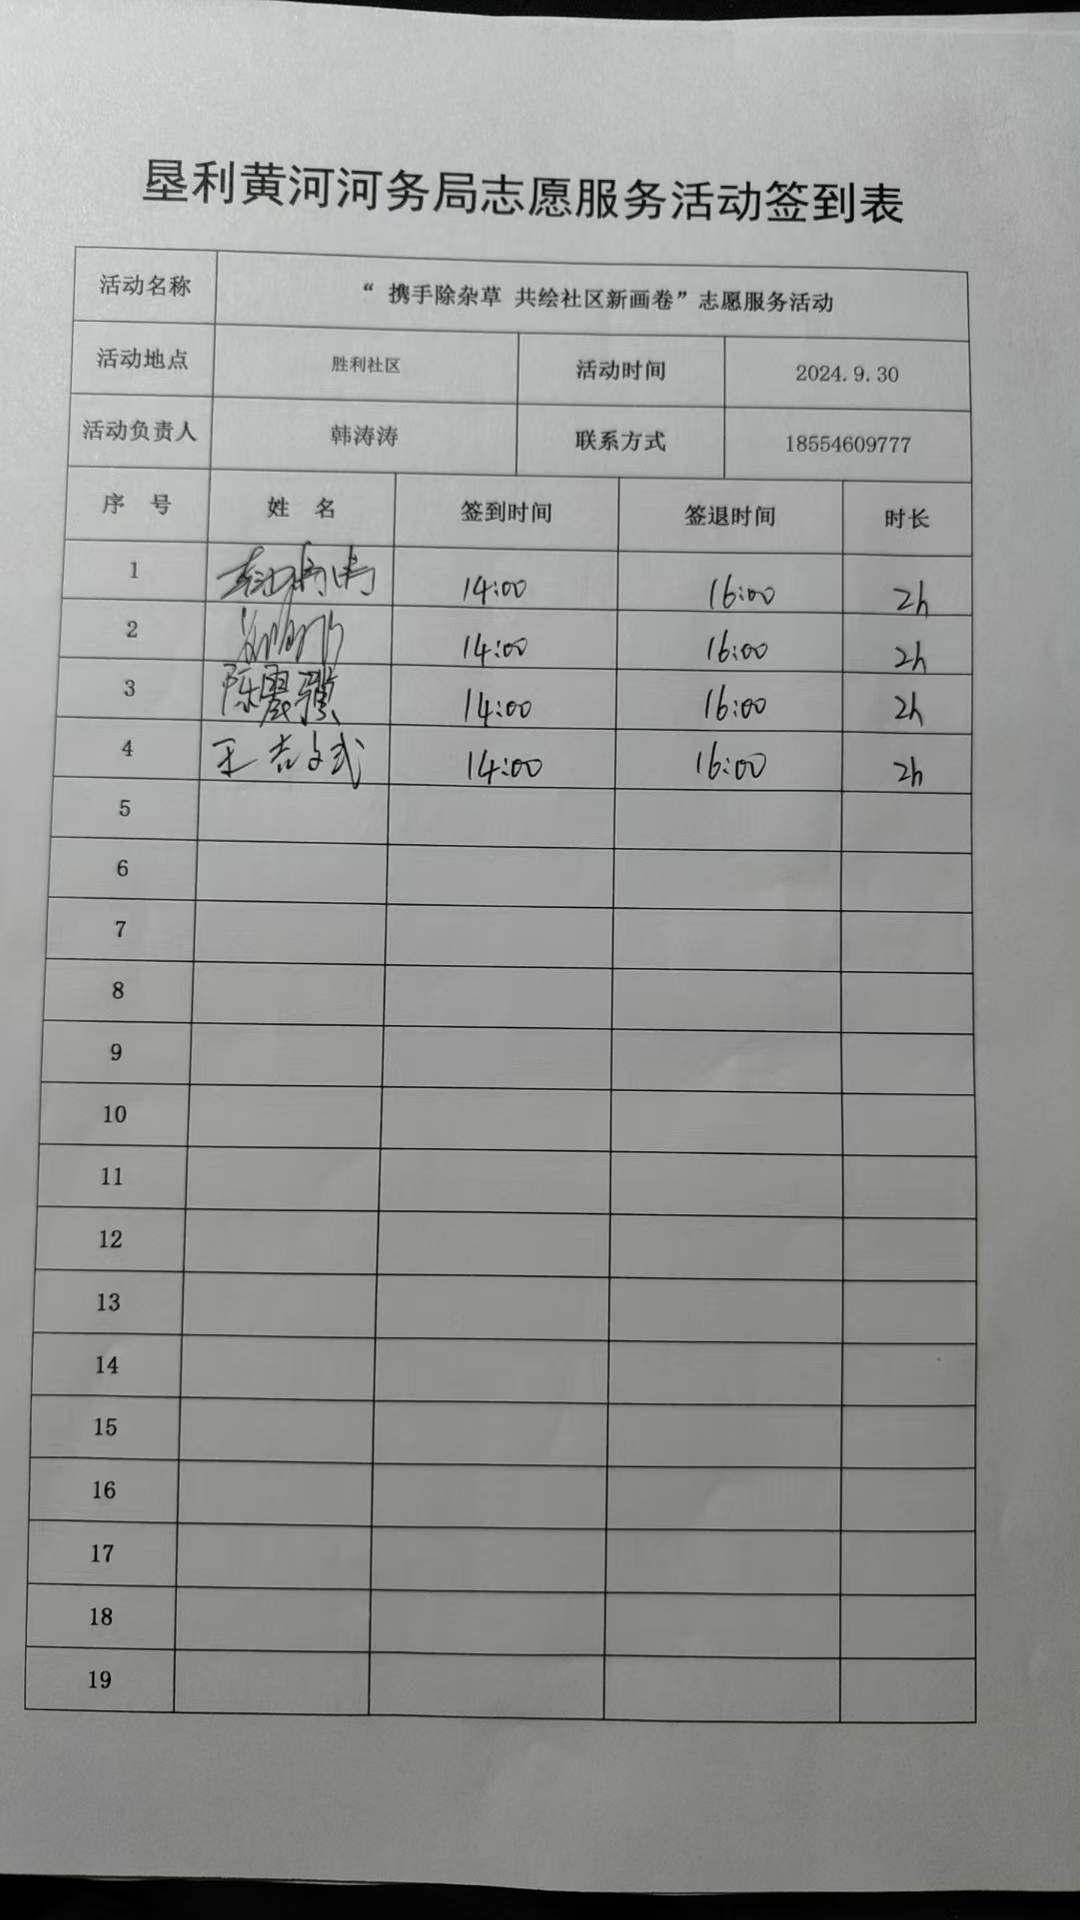 垦利黄河河务局志愿服务活动签到表
活动名称 “ 携手除杂草 共绘社区新画卷”志愿服务活动
活动地点 胜利社区 活动时间 2024.9.30
活动负责人 韩涛涛 联系方式 18554609777
序 号 姓 名 签到时间 签退时间 时长
1 14:00 16:00 2h
2 14:00 16:00 2h
3 陈晨骥 14:00 16:00 2h
4 王吉文武 14:00 16:00 2h
5
6
7
8
9
10
11
12
13
14
15
16
17
18
19